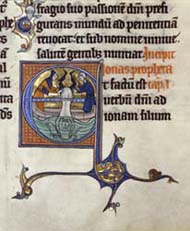 fragio suo passionem dñi prefi
gurans mundũ ad penitentiam
reuocat. et sub nomine niniue
salutem gentibus nunciat. Incipit
ionas propheta
t factũ est
uerbum dñi ad
ionam filium